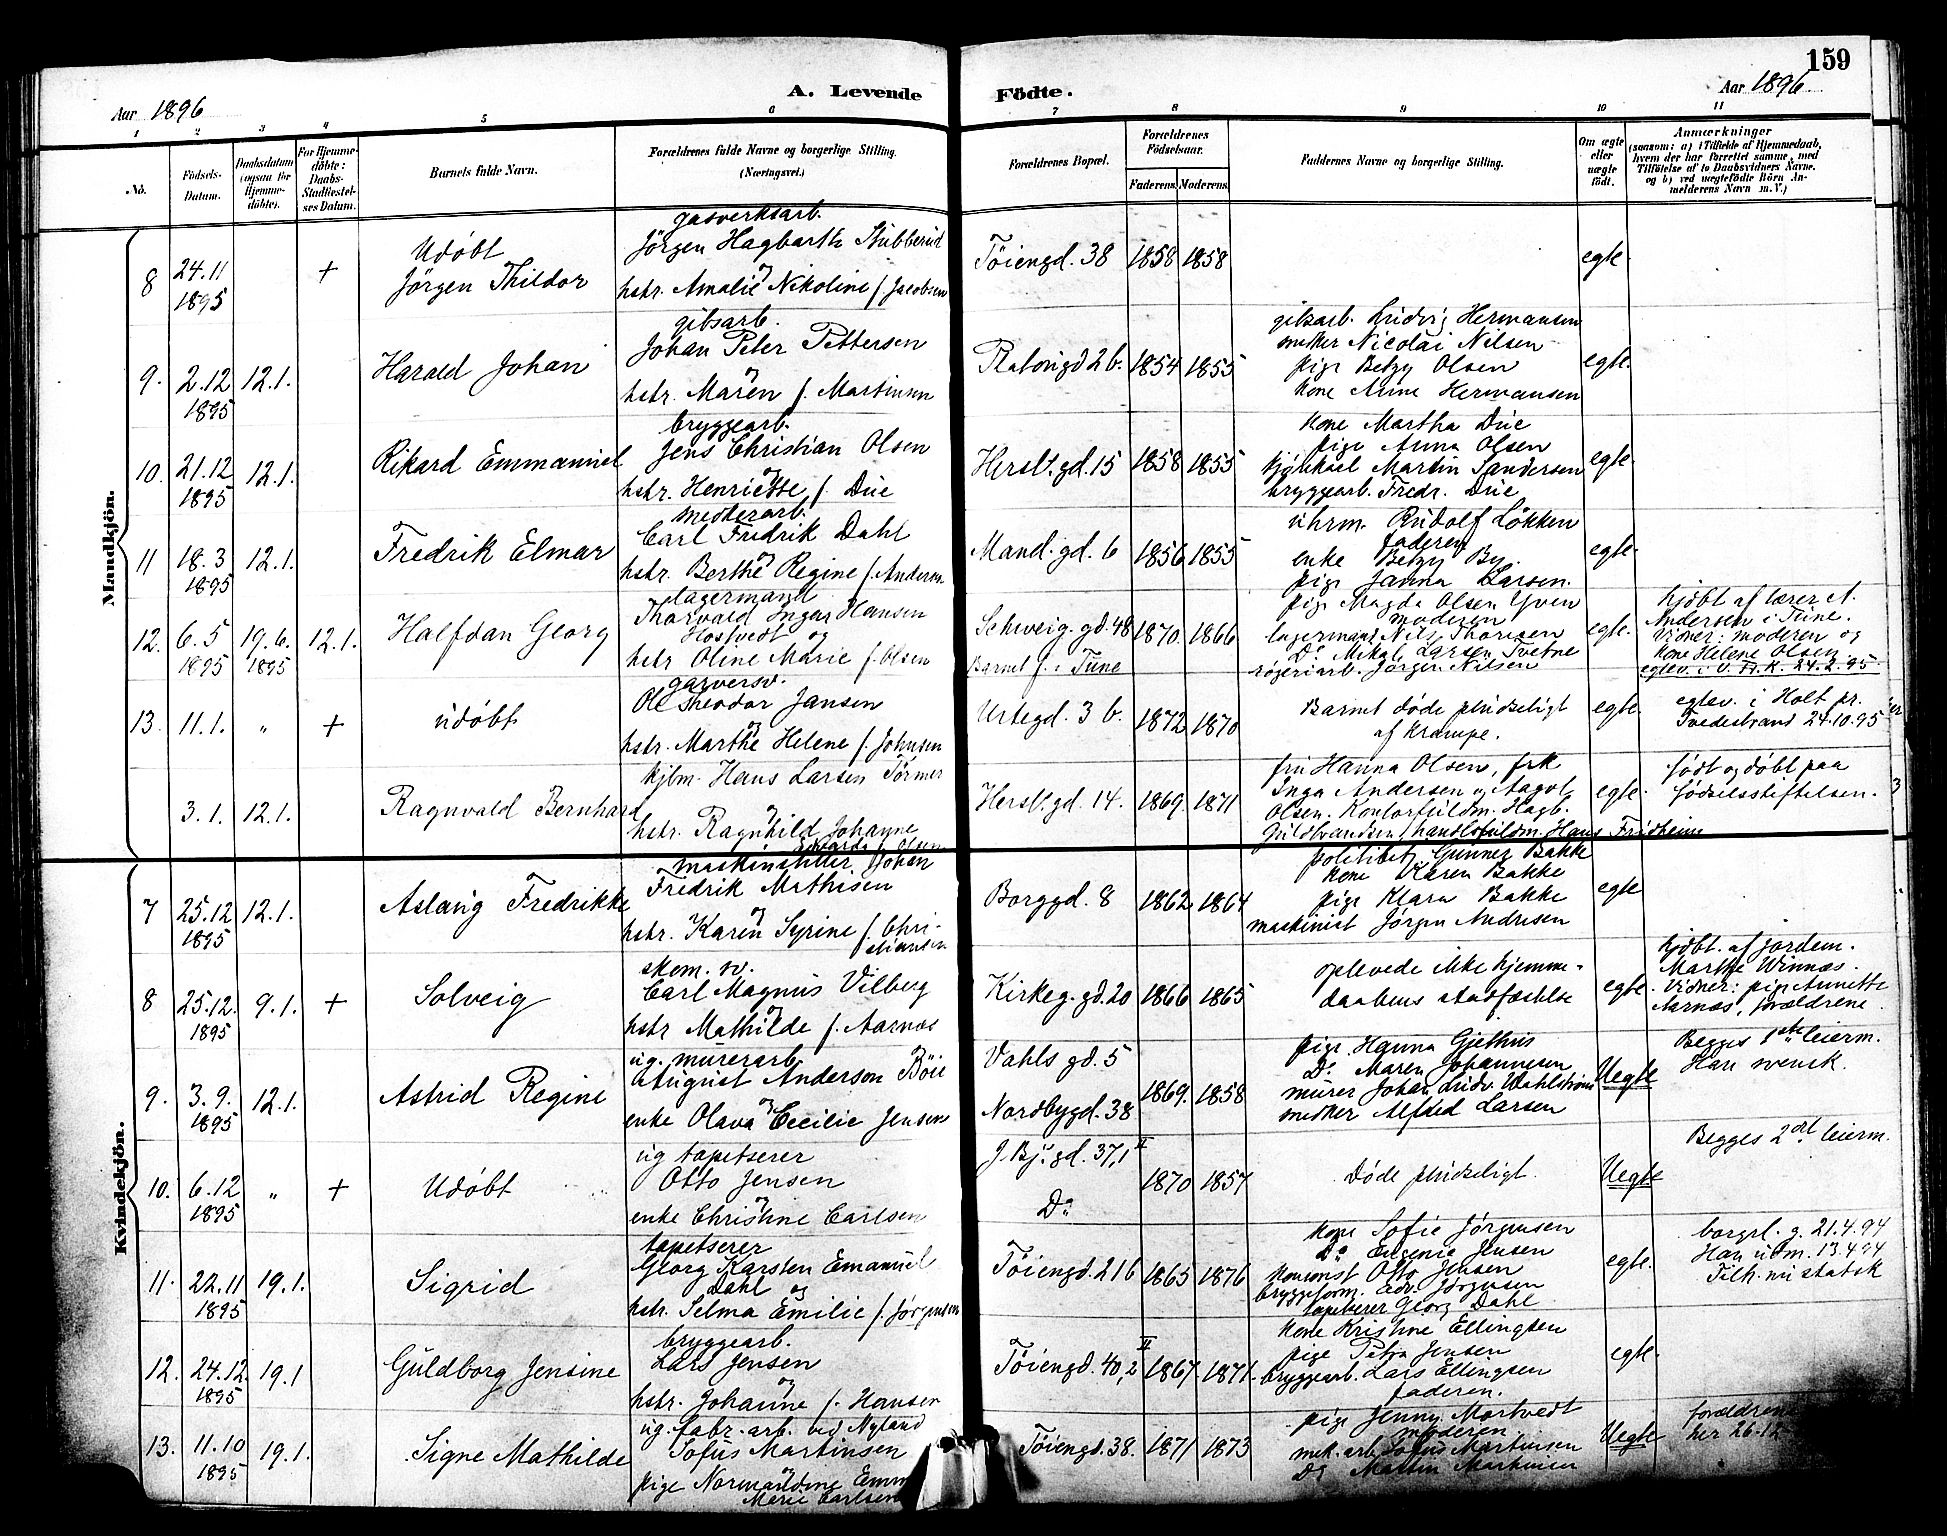 159
A. Levende Födte.
Aar 1896
Aar 1896
1 2 3 4 5 6 7 8 9 10 11
No.
Födsels-Datum.
Daabsdatum (ogsaa for Hjemmedöbte).
For Hjemmedöbte: Daabs-Stadfæstelses Datum.
Barnets fulde Navn.
Forældrenes fulde Navne og borgerlige Stilling. (Næringsvei.)
Forældrenes Bopæl.
Forældrenes Födselsaar.
Faderens. Moderens.
Faddernes Navne og borgerlige Stilling.
Om ægte eller uægte födt.
Anmærkninger
(saasom: a) i Tilfælde af Hjemmedaab, hvem der har forrettet samme, med Tilföielse af to Daabsvidners Navne, og b) ved uægtefödte Börn Anmelderens Navn m. V.)
Mandkjön.
8 24.11 1895 +
Udöbt
Jörgen Thildor
gasverksarb.
Jörgen Hagbarth Stubberud
og
hstr. Amalie Nikoline f. Jacobsen
Töiengd. 38 1858 1858
egte
9. 2.12 1895 12.1.
Harald Johan
gibsarb.
Johan Peter Pettersen
og
hstr. Maren f. Martinsen
2b. 1854 1855
gibsarb. Ludvig Hermansen
snedker Nicolai Nilsen
pige Betzy Olsen
kone Anne Hermansen
egte.
10. 21.12 1895 12.1.
Rikard Emmanuel
bryggearb.
Jens Christian Olsen
og
hstr. Henriette f. Due
Hersl. gd. 15 1858 1855
kone Martha Due
pige Anna Olsen
Martin Sandersen
bryggearb. Fredr. Due
egte.
11 18.3 1895 12.1.
Fredrik Elmar
Carl Fredrik Dahl
og
hstr. Berthe Regine f. Andersen
Mand. gd. 6 1856 1855
uhrm. Rudolf Lökken
faderen
enke Betzy By.
pige Janna Larsen.
egte.
12. 6.5 1895 19.6. 1895 12.1.
Halfdan Georg
lagermand
Thorvald Ingar Hansen
Hostvedt og
hstr Oline Marie f. Olsen
Schweig. gd. 48 1870. 1866
Barnet f. i Tune
pige Magda Olsen Yven
moderen
lagermand Nils Thoresen
Do Mikal Larsen Tvetne
røgeriarb. Jörgen Nilsen
egte.
hjdbt af lærer A.
Andersen i Tune.
Vidner: moderen og
kone Helene Olsen.
egtev. i V. Fr.K. 24.2.95
13. 11.1. " +
udöbt
garversv.
Ole Theodor Jansen
og
hstr. Marthe Helene f. Johnsen
Urtegd. 3 b. 1872 1870
Barnet döde pludseligt
af krampe.
egte.
egtev. i Holt pr.
Tvedestrand 24.10.95
3.1. 12.1.
Ragnvald Bernhard
kjbm. Hans Larsen Törmer
og
hstr. Ragnhild Johanne
f. Olsen
Hersl. gd. 14. 1869. 1871
fru Hanna Olsen, frk
Inga Andersen og Aagot
Olsen. Kontorfuldm. Hagb.
Guldbrandsen, handlsfuldm. Hans Fridheim
egte.
födt og döbt paa
födselsstiftelsen. 3
Kvindekjön.
7 25.12 1895 12.1.
Aslaug Fredrikke
Johan
Fredrik Mathisen
og
hstr. Karen Syrine f. Christiansen
Borggd. 8 1862 1864
politibetj. Gunner Bakke
kone Karen Bakke
pige Klara Bakke
maskinist Jörgen Andresen
egte
8 25.12. 1895 9.1. +
Solveig
skom. sv.
Carl Magnus Vilberg
og
hstr Mathilde f. Aarnæs
Kirkeg. gd. 20 1866 1865
oplevede ikke hjemme-
daabens stadfæstelse
egte.
hjdbt. af jordem.
Marthe Winnæs.
Vidner: pige Annette
Aarnæs, forældrene
9. 3.9. 1895 12.1.
Astrid Regine
ug. murerarb
August Anderson Böie
og
enke Olava Cecilie Jensen
Vahls gd. 5
Nordbygd. 38 1869. 1858
pige Hanna Gjethus
Do Maren Johannesen
murer Johan Ludv. Wahlström
snedker Alfred Larsen
Uegte
Begges 1ste leierm.
Han svensk.
10. 6.12 1895 " +
Udöbt
ug tapetserer
Otto Jensen
og
enke Christine Carlsen
J. Bj. gd. 37,1 II
Do 1870 1857
Döde pludseligt.
Uegte
Begges 2det leierm.
11. 22.11 1895 19.1.
Sigrid
tapetserer
Georg Karsten Emanuel
Dahl og
hstr. Selma Emilie f. Jörgensen
Töiengd. 21b 1865 1876
kone Sofie Jörgensen
Do Eugenie Jensen
Otto Jensen
bryggeform. Edv. Jörgensen
tapetserer Georg Dahl
egte.
borgrl. g. 21.4.94
Han udm. 13.4.94
12. 24.12. 1895 19.1
Guldborg Jensine
bryggearb.
Lars Jensen
og
hstr. Johanne f. Hansen
Töiengd. 40,2 II 1867. 1871.
kone Kristine Ellingsen
pige Petra Jensen
bryggearb. Lars Ellingsen
faderen.
egte.
13. 11.10 1895 19.1.
Signe Mathilde
ug. fabr. arb. ved Nyland
Sofus Martinsen
og
pige Normandine
Marie Carlsen
Töiengd. 38. 1871 1873
pige Jenny Mortvedt
moderen
mek. arb. Sofus Martinsen
Do Martin Martinsen
Uegte
forældrene
her 26.12